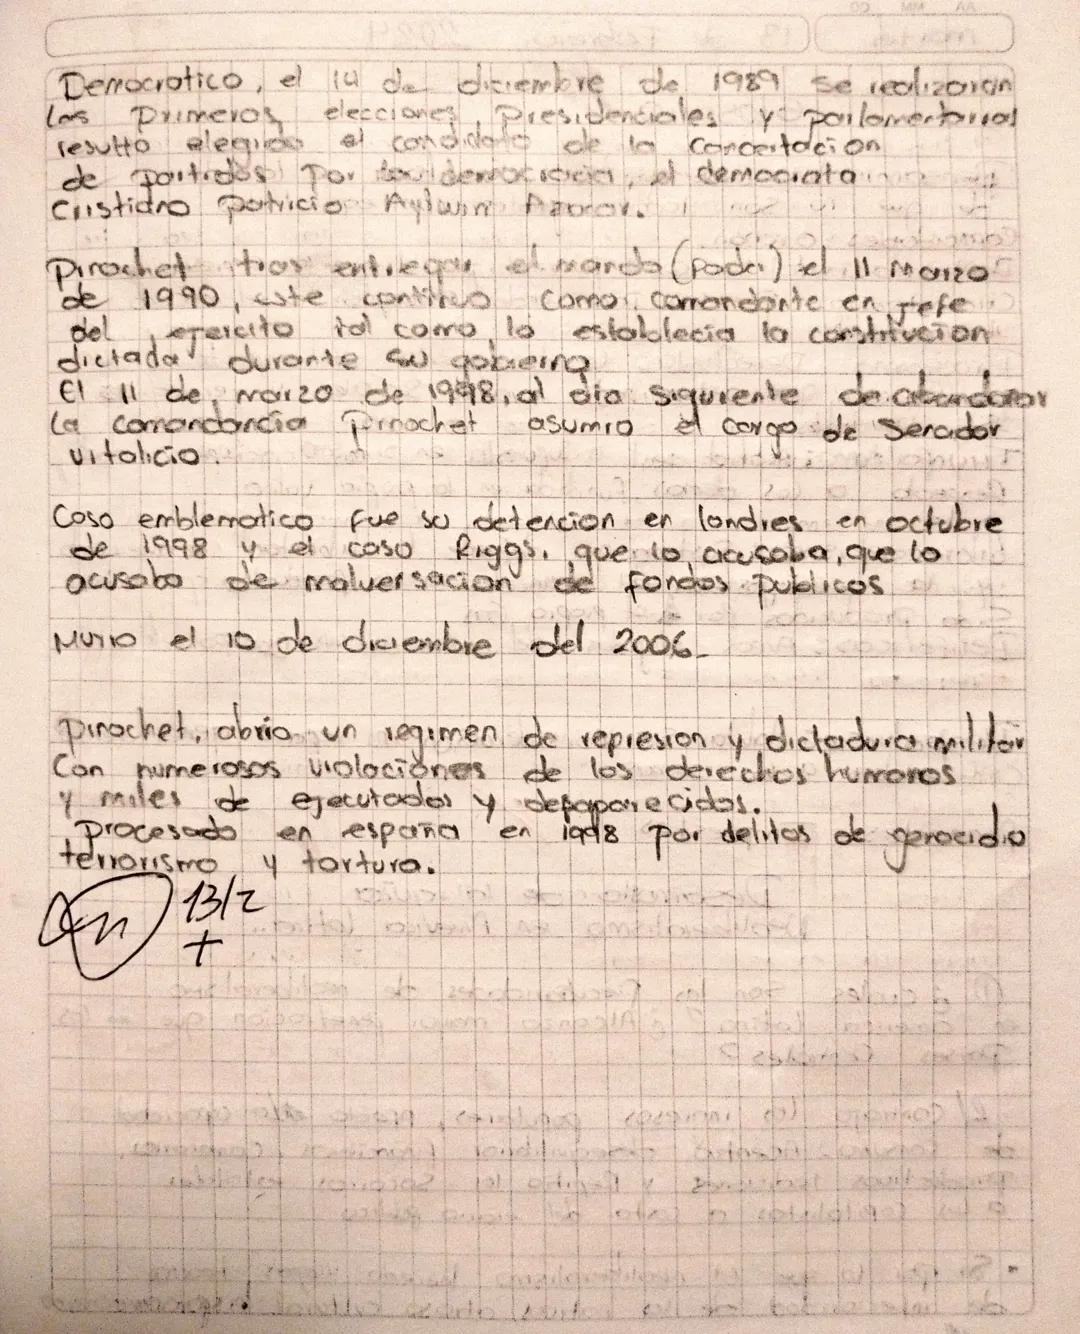 Democratico, el 14 de diciembre de 1989 se realizaron
las Primeros elecciones Presidenciales y parlamentarias
resulto elegido el candidato de la Concertacion
de partidos por la democracia, el democrata
Cristiano patricio Aylwin Azocar.
Pinochet tras entregar el mando (poder) el 11 Marzo
de 1990, este continuo como comandante en Jefe
del ejercito tal como lo establecia la constitucion
dictada durante su gobierno
El 11 de marzo de 1998, al dia siguiente de abandonar
la comandancia Pinochet asumio el cargo de Senador
vitalicio.
Caso emblematico fue su detencion en londres en octubre
de 1998 y el caso Riggs, que lo acusaba, que lo
acusaba de malversacion de fondos publicos
Murio el 10 de diciembre del 2006.
pinochet, abrio un regimen de represion y dictadura militar
Con numerosos violaciones de los derechos humanos
y miles de ejecutados y depaparecidos.
procesado en españa en 1998 por delitos de genocidio
terrorismo y tortura.
13/2
+